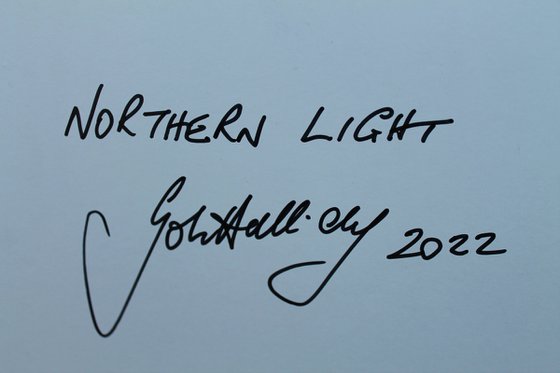 NORTHERN LIGHT
John Halliday 2022